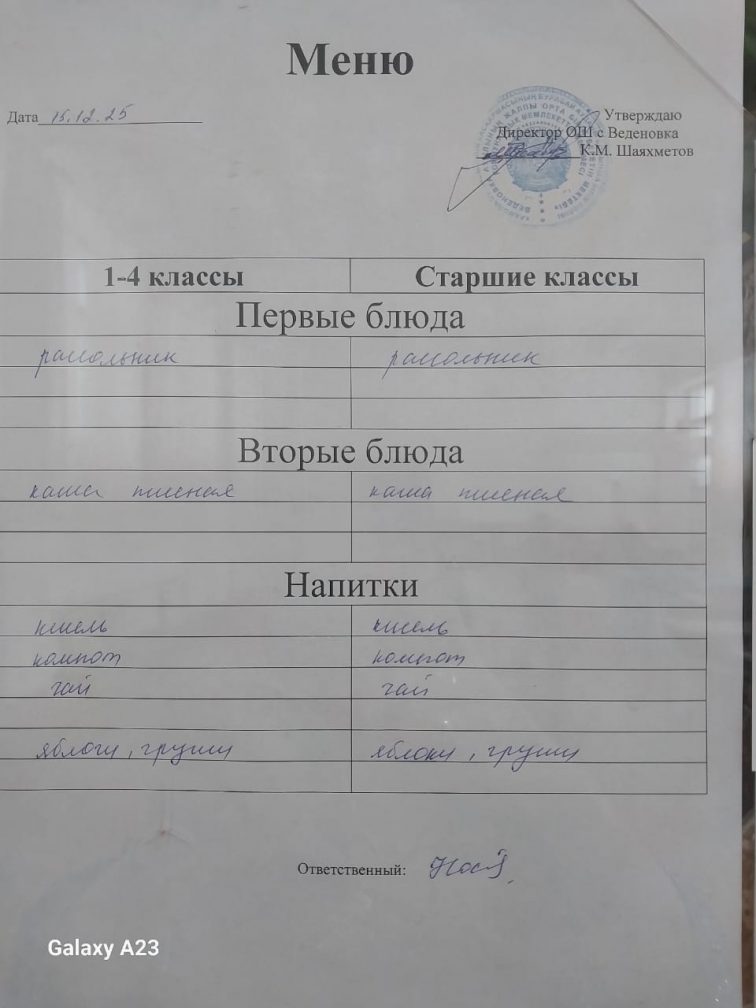 Меню
Дата 15.12.25
Утверждаю
Директор ОШ с Веденовка
К.М. Шаяхметов
1-4 классы Старшие классы
Первые блюда
рассольник рассольник
Вторые блюда
каша пшеная каша пшеная
Напитки
кисель кисель
компот компот
чай чай
яблоки, груши яблоки, груши
Ответственный:
Galaxy A23